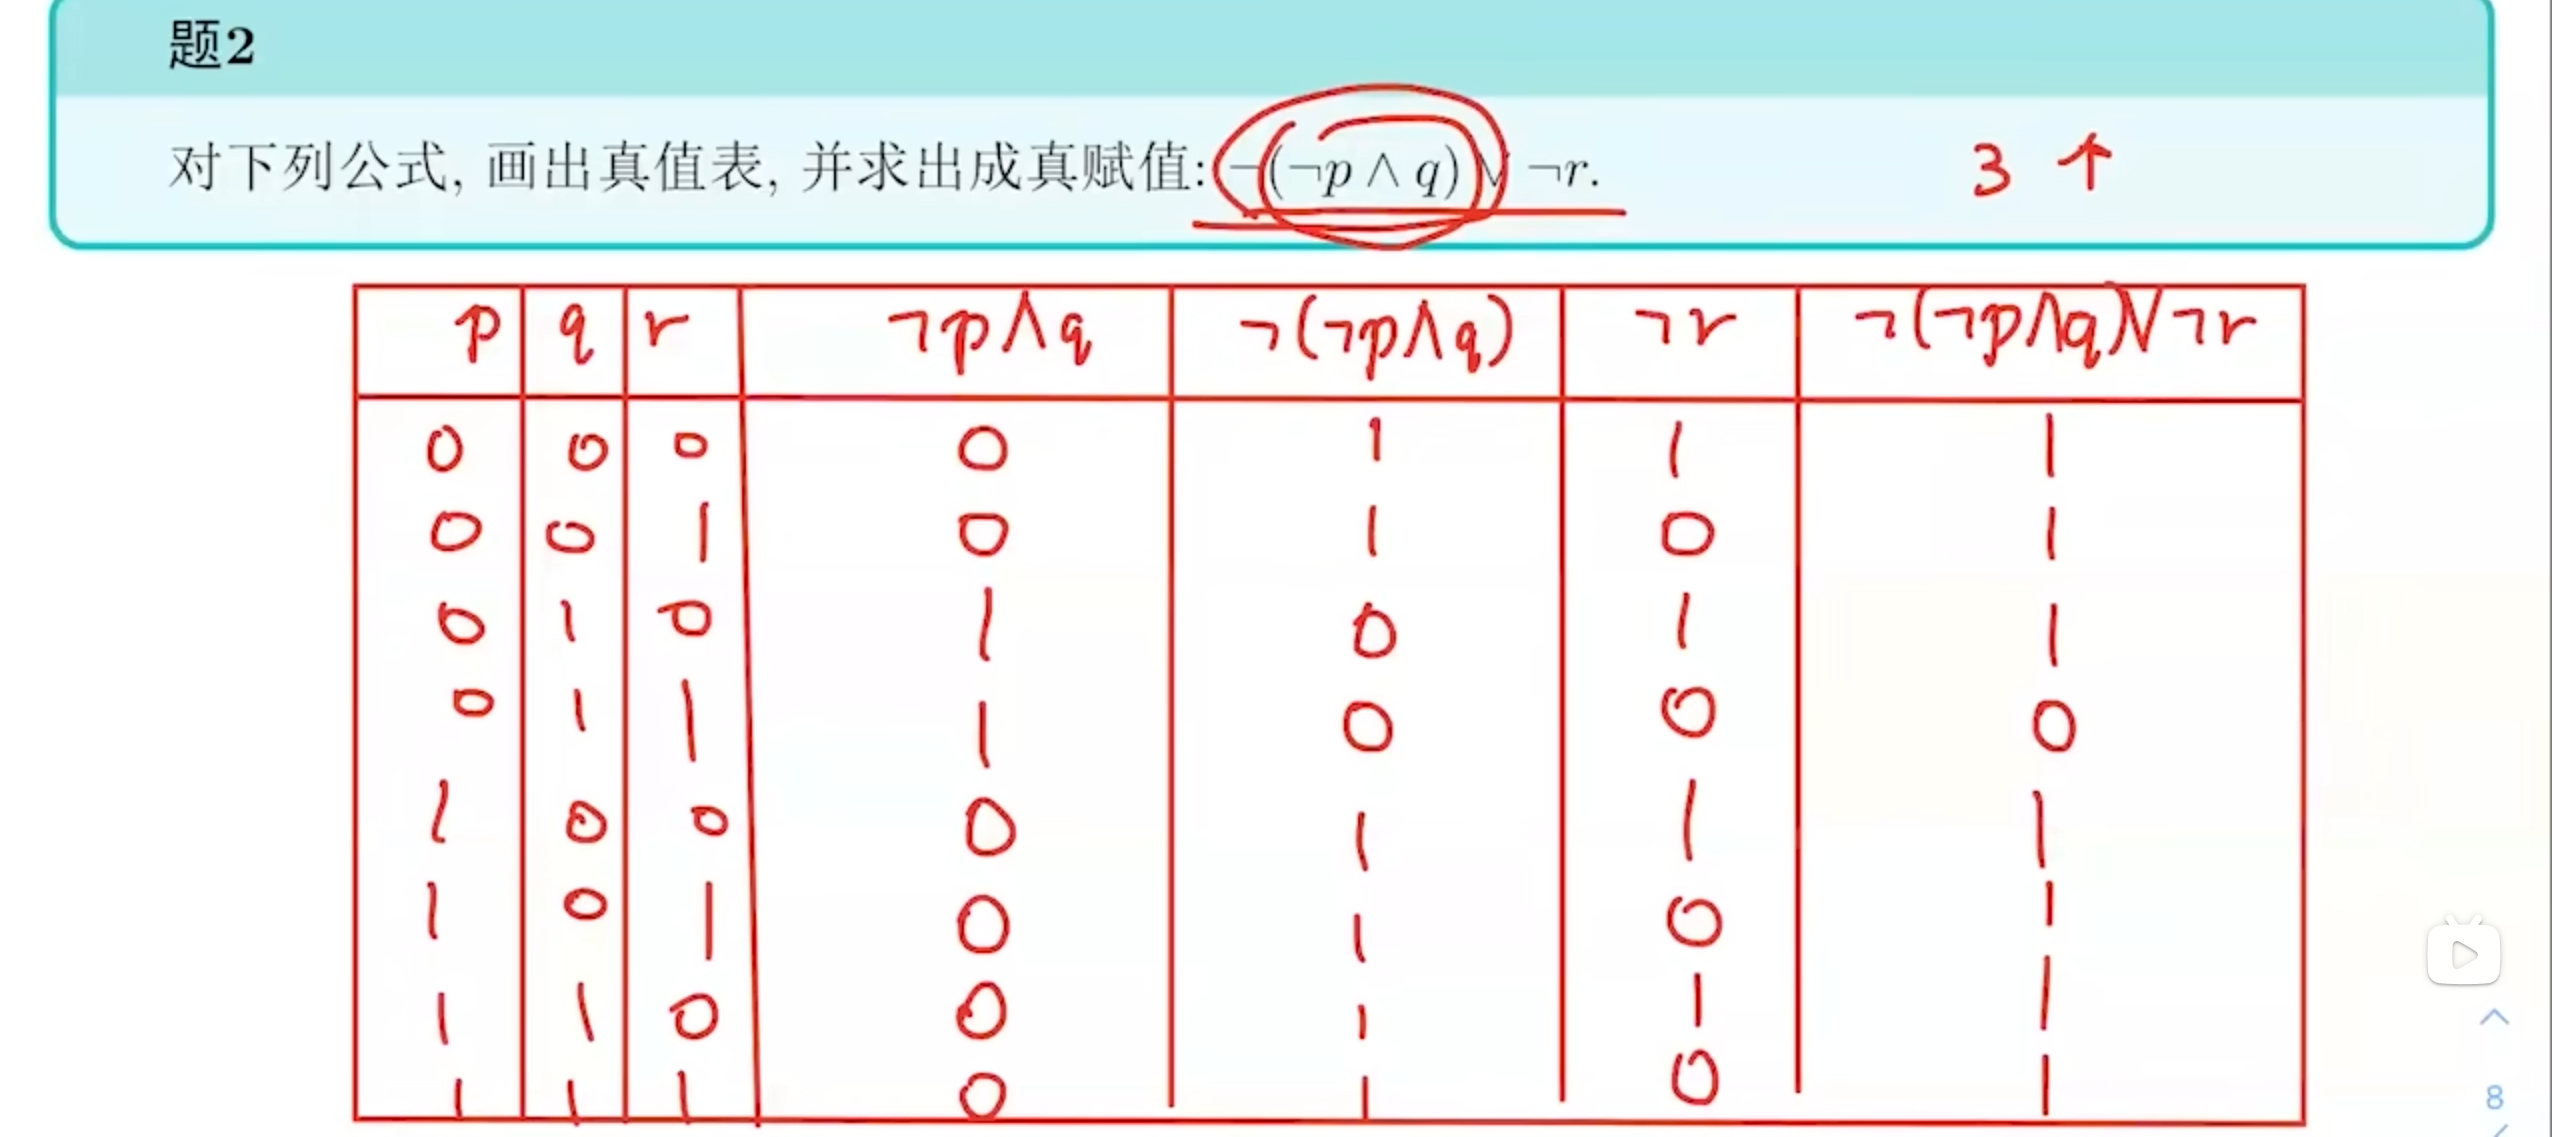 题2
对下列公式, 画出真值表, 并求出成真赋值: ¬(¬p ∧ q) ∨ ¬r.
3 ↑
p q r ¬p∧q ¬(¬p∧q) ¬r ¬(¬p∧q)∨¬r
0 0 0 0 1 1 1
0 0 1 0 1 0 1
0 1 0 1 0 1 1
0 1 1 1 0 0 0
1 0 0 0 1 1 1
1 0 1 0 1 0 1
1 1 0 0 1 1 1
1 1 1 0 1 0 1
8